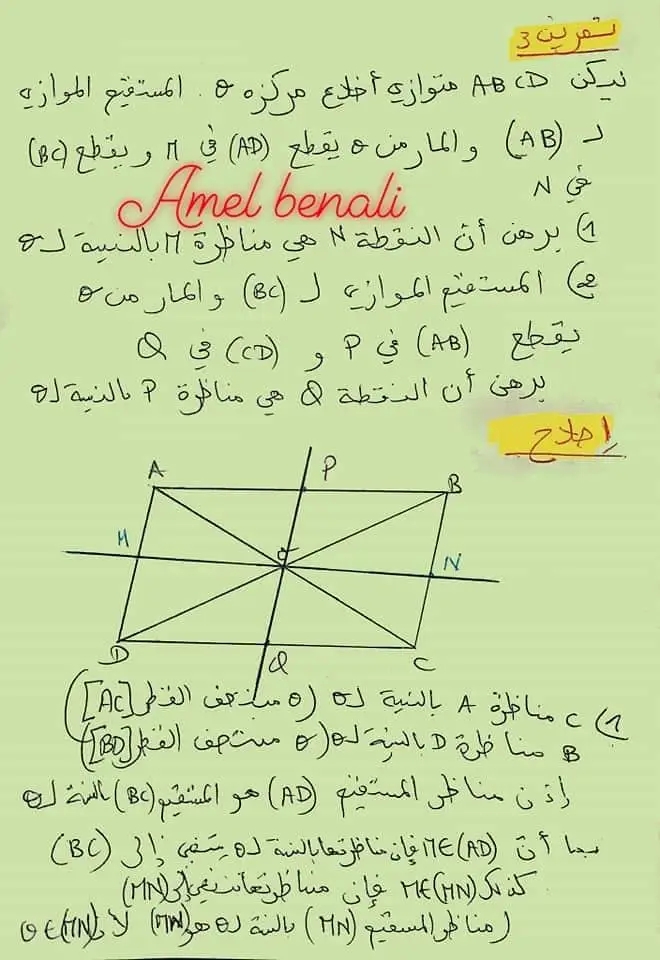 تمرين 3
ليكن ABCD متوازي أضلاع مركزه O. المستقيم الموازي
لـ (AB) والمار من O يقطع (AD) في M ويقطع (BC)
في N
Amel benali
1) برهن أن النقطة N هي مناظرة M بالنسبة لـ O
2) المستقيم الموازي لـ (BC) والمار من O
يقطع (AB) في P و (CD) في Q
برهن أن النقطة Q هي مناظرة P بالنسبة لـ O
إصلاح
A P B
M O N
D Q C
1) C مناظرة A بالنسبة لـ O (O منتصف القطر [AC])
B مناظرة D بالنسبة لـ O (O منتصف القطر [BD])
إذن مناظر المستقيم (AD) هو المستقيم (BC) بالنسبة لـ O
بما أن M∈(AD) فإن مناظرتها بالنسبة لـ O ينتمي إلى (BC)
كذلك M∈(MN) فإن مناظرتها تنتمي إلى (MN)
(مناظر المستقيم (MN) بالنسبة لـ O هو (MN) لأن O∈(MN)